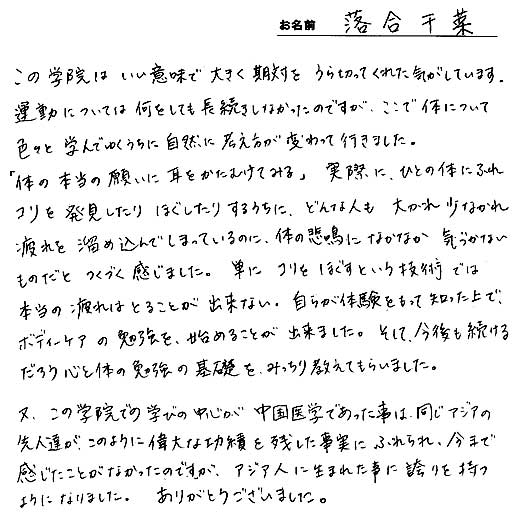 お名前 落合千葉
この学院は いい意味で 大きく 期対を うら切ってくれた 気がしています.
運動については 何をしても 長続きしなかったのですが、ここで 体について
色々と 学んでゆくうちに 自然に 考え方が 変わって 行きました。
「体の 本当の 願いに 耳をかたむけてみる」 実際に、ひとの体にふれ
コリを 発見したり ほぐしたり するうちに、どんな人も 大かれ 少なかれ
疲れを 溜め込んでしまっているのに、体の悲鳴に なかなか 気づかない
ものだと つくづく 感じました。 単に コリを ほぐすという 技術 では
本当の 疲れは とることが 出来ない。 自らが 体験をもって 知った上で、
ボディーケア の 勉強を、始めることが 出来ました。 そして、今後も 続ける
だろう 心と体の 勉強 の 基礎を みっちり 教えてもらいました。
又、この学院での 学びの 中心が 中国医学であった事は、同じアジアの
先人達が、このように 偉大な功績を 残した事実に ふれられ、今まで
感じたことがなかったのですが、アジア人に 生まれた事に 誇りを 持つ
ようになりました。 ありがとうございました。